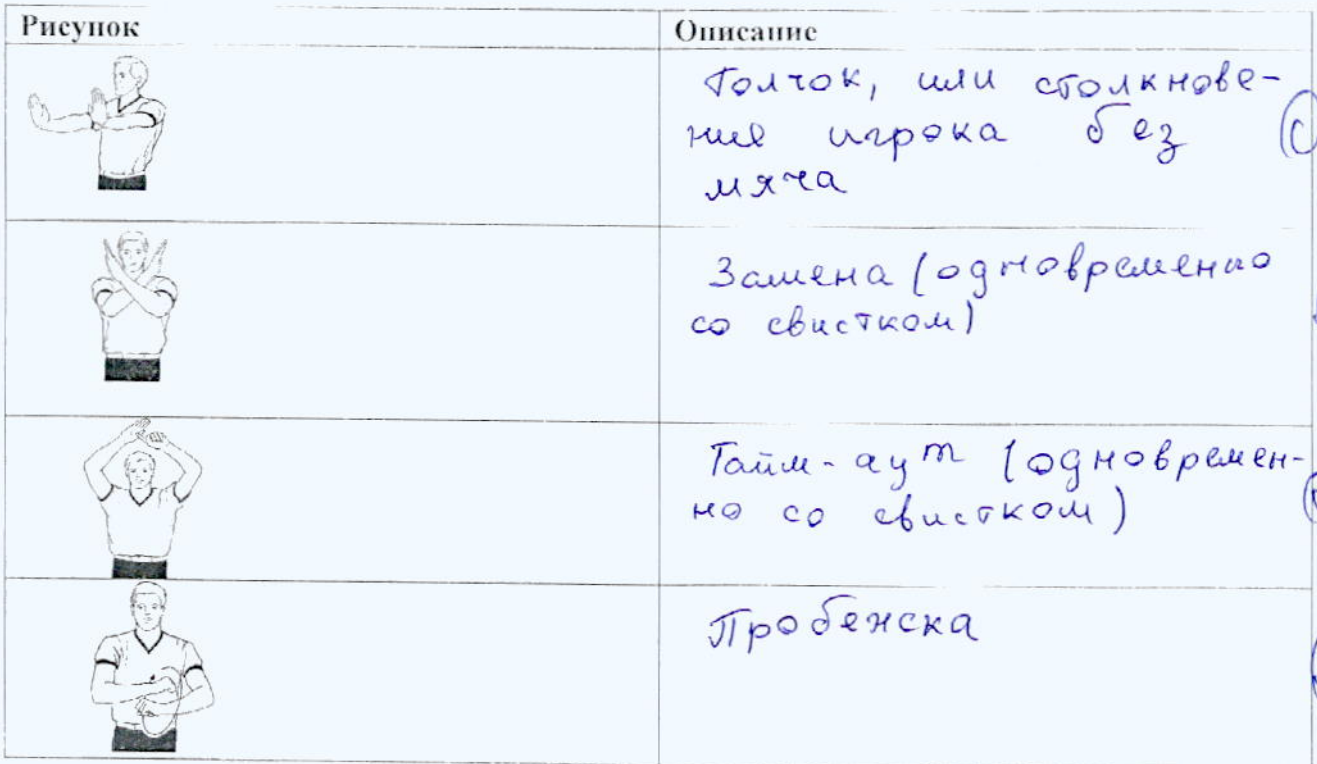 Рисунок
Описание
Толчок, или столкнове-
ние игрока без
мяча
Замена (одновременно
со свистком)
Тайм-аут (одновремен-
но со свистком)
Пробежка